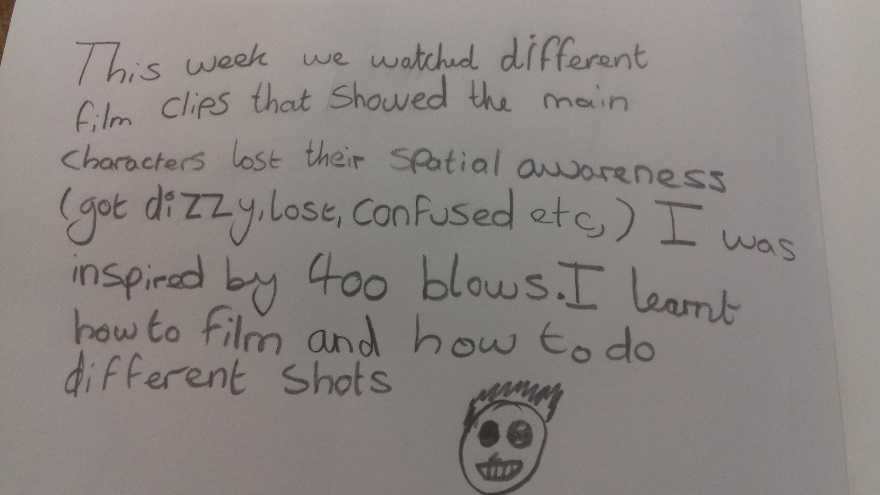 This week we watched different
film clips that showed the main
characters lost their spatial awareness
(got dizzy, lost, confused etc,) I was
inspired by 400 blows. I learnt
how to film and how to do
different shots